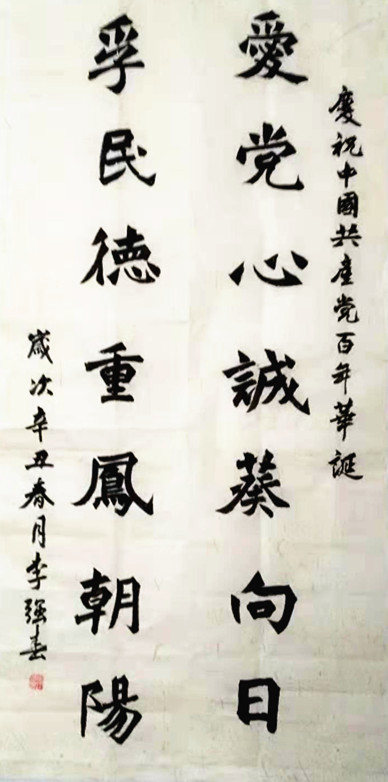 慶祝中國共產党百年華誕
愛党心誠葵向日
孚民德重鳳朝陽
歲次辛丑春月李强書